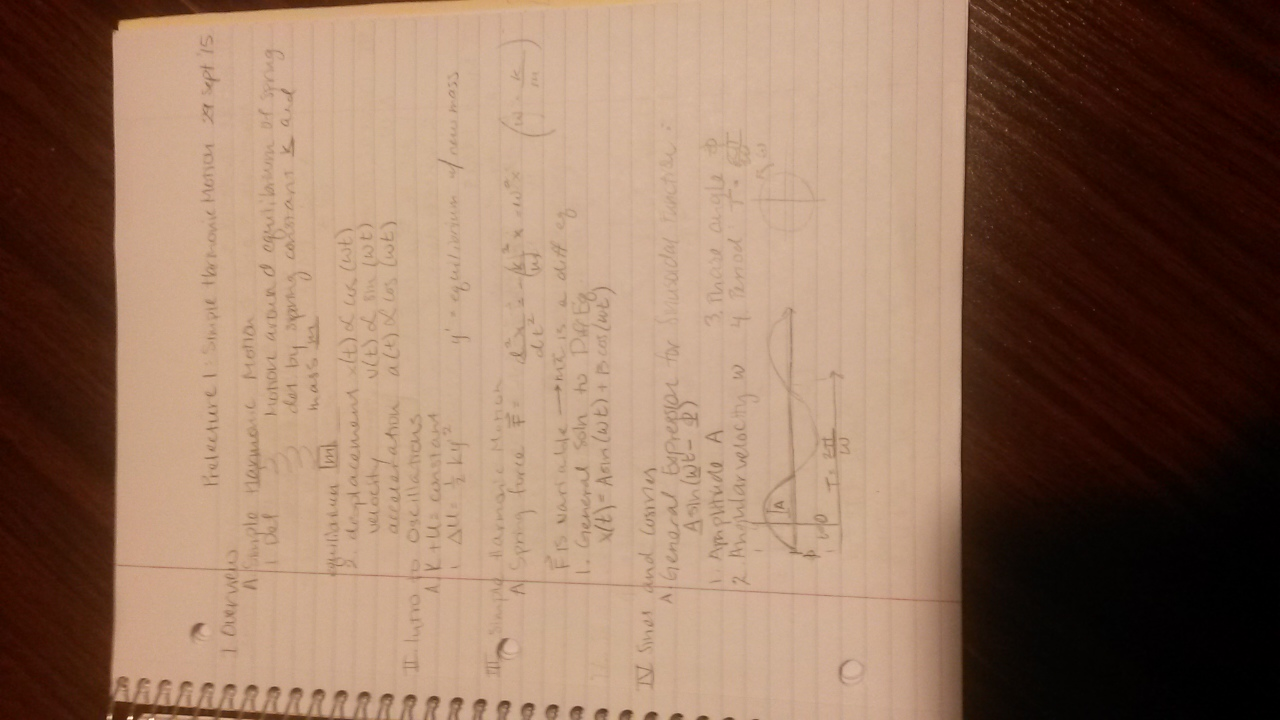 Prelecture 1: Simple Harmonic Motion 29 Sept '15
I. Overview
A. Simple Harmonic Motion
1. Def Motion around equilibrium of spring
det by spring constant k and
mass m
equilibrium m
2. displacement x(t) ∝ cos(ωt)
velocity v(t) ∝ sin(ωt)
acceleration a(t) ∝ cos(ωt)
II. Intro to Oscillations
A. K + U = constant
1. ΔU = ½ky'² y' = equilibrium w/ new mass
III. Simple Harmonic Motion
A. Spring force F = d²x/dt² = -(k/m) x = ω²x (ω = k/m)
F is variable → ma is a diff eq
1. General Soln to Diff Eq
x(t) = Asin(ωt) + Bcos(ωt)
IV Sines and Cosines
A. General Expression for Sinusoidal Function:
Asin(ωt - Φ)
1. Amplitude A 3. Phase angle Φ
2. Angular velocity ω 4. Period T = 2π/ω
A
Φ
0 T = 2π/ω